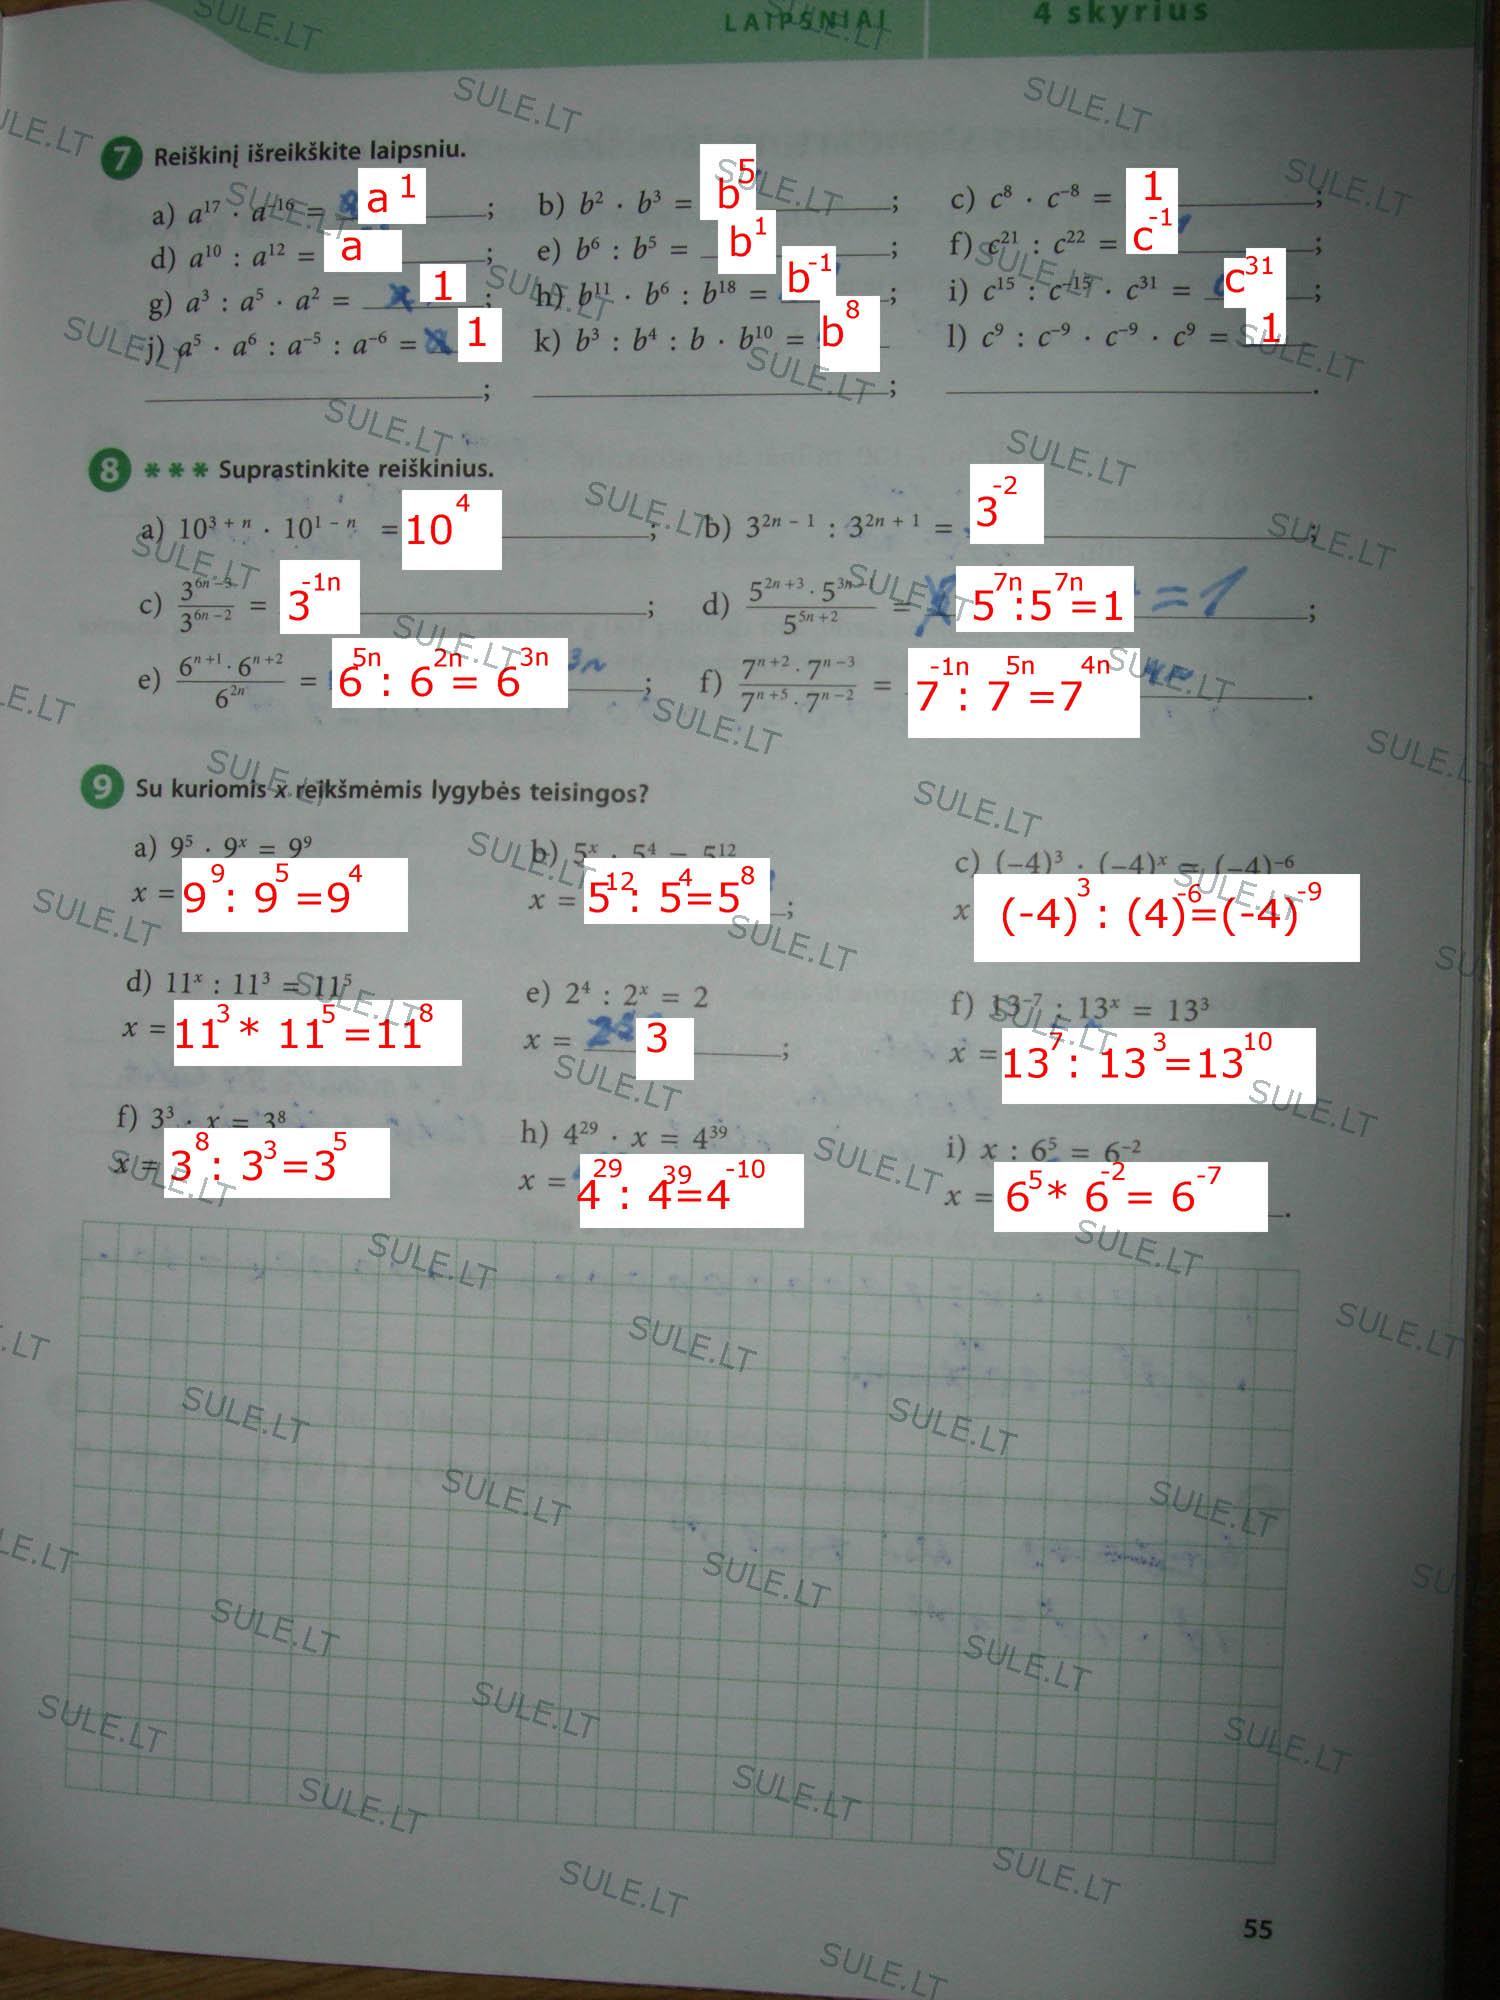 LAIPSNIAI 4 skyrius
7 Reiškinį išreikškite laipsniu.
a) a¹⁷ · a⁻¹⁶ = a ¹ ; b) b² · b³ = b⁵ ; c) c⁸ · c⁻⁸ = 1 ;
d) a¹⁰ : a¹² = a ; e) b⁶ : b⁵ = b¹ ; f) c²¹ : c²² = c⁻¹ ;
g) a³ : a⁵ · a² = 1 ; h) b¹¹ · b⁶ : b¹⁸ = b⁻¹ ; i) c¹⁵ : c⁻¹⁵ · c³¹ = c³¹ ;
j) a⁵ · a⁶ : a⁻⁵ : a⁻⁶ = 1 ; k) b³ : b⁴ : b · b¹⁰ = b⁸ ; l) c⁹ : c⁻⁹ · c⁻⁹ · c⁹ = 1 .
8 *** Suprastinkite reiškinius.
a) 10³ ⁺ ⁿ · 10¹ ⁻ ⁿ = 10⁴ ; b) 3²ⁿ ⁻ ¹ : 3²ⁿ ⁺ ¹ = 3⁻² ;
c) 3⁶ⁿ⁻³ / 3⁶ⁿ⁻² = 3⁻¹ⁿ ; d) 5²ⁿ⁺³ · 5³ⁿ⁻¹ / 5⁵ⁿ⁺² = 5⁷ⁿ:5⁷ⁿ=1 = 1 ;
e) 6ⁿ⁺¹ · 6ⁿ⁺² / 6²ⁿ = 6⁵ⁿ : 6²ⁿ = 6³ⁿ ; f) 7ⁿ⁺² · 7ⁿ⁻³ / 7ⁿ⁺⁵ · 7ⁿ⁻² = 7⁻¹ⁿ : 7⁵ⁿ =7⁴ⁿ .
9 Su kuriomis x reikšmėmis lygybės teisingos?
a) 9⁵ · 9ˣ = 9⁹ b) 5ˣ · 5⁴ = 5¹² c) (−4)³ · (−4)ˣ = (−4)⁻⁶
x = 9⁹ : 9⁵ =9⁴ x = 5¹² : 5⁴=5⁸ ; x (-4)³ : (4)⁻⁶=(-4)⁻⁹
d) 11ˣ : 11³ = 11⁵ e) 2⁴ : 2ˣ = 2 f) 13⁻⁷ : 13ˣ = 13³
x = 11³ * 11⁵ =11⁸ x = 3 ; x = 13⁷ : 13³ =13¹⁰
f) 3³ · x = 3⁸ h) 4²⁹ · x = 4³⁹ i) x : 6⁵ = 6⁻²
x = 3⁸ : 3³ =3⁵ x = 4²⁹ : 4³⁹=4⁻¹⁰ x = 6⁵* 6⁻² = 6⁻⁷ .
55
SULE.LT